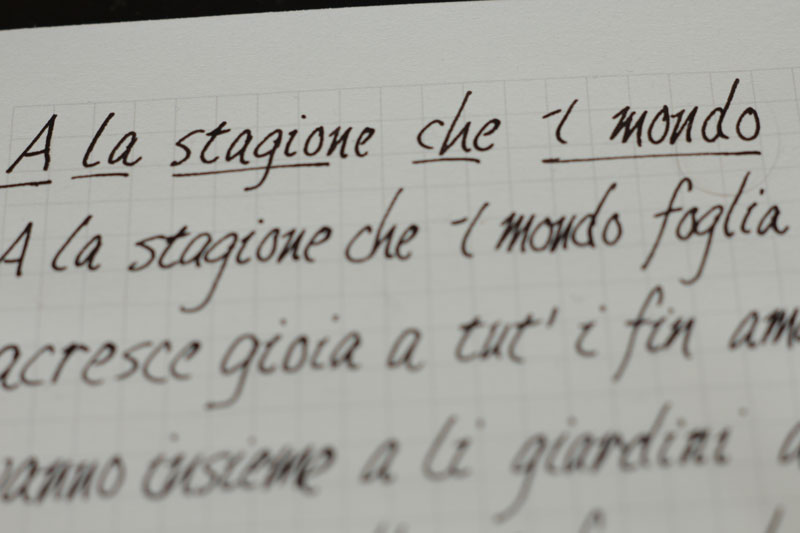 A la stagione che 'l mondo
A la stagione che 'l mondo foglia
acresce gioia a tut' i fin
insieme a li giardini